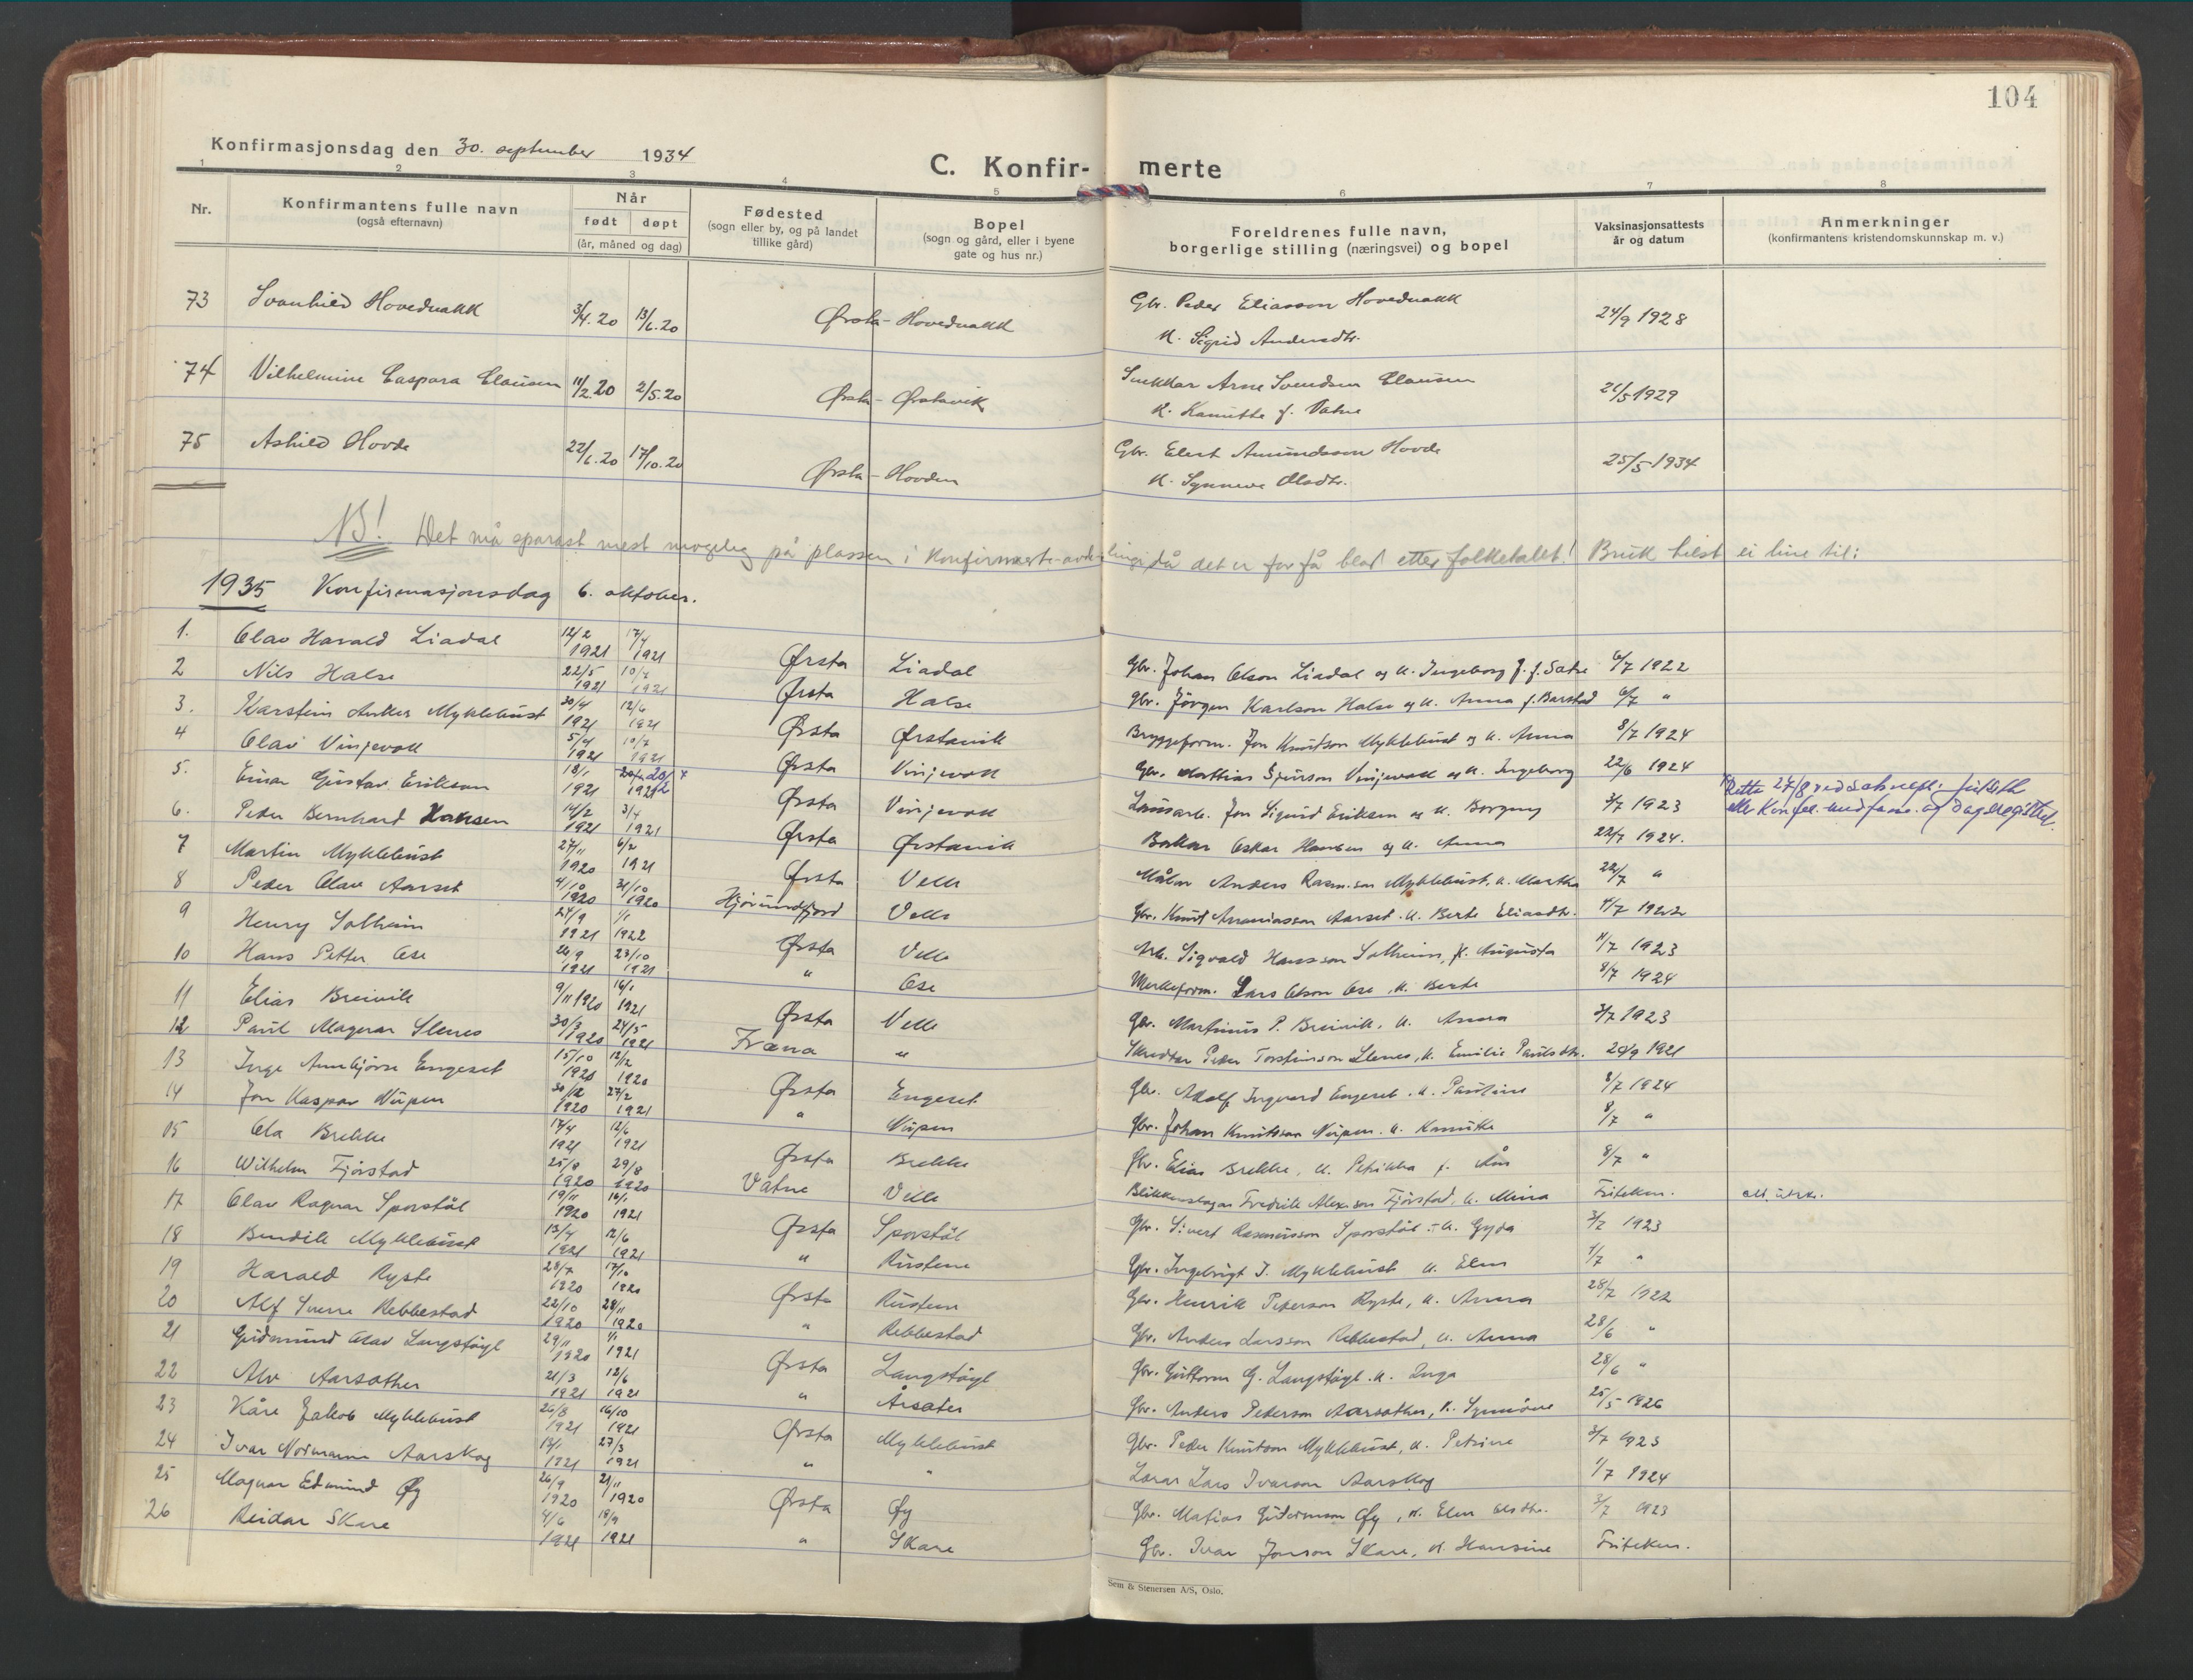 104
Konfirmasjonsdag den 30. september 1934
C. Konfir- merte
1 2 3 4 5 6 7 8
Nr. Konfirmantens fulle navn (også efternavn) Når født døpt (år, måned og dag) Fødested (sogn eller by, og på landet tillike gård) Bopel (sogn og gård, eller i byene gate og hus nr.) Foreldrenes fulle navn, borgerlige stilling (næringsvei) og bopel Vaksinasjonsattests år og datum Anmerkninger (konfirmantens kristendomskunnskap m. v.)
73 Svanhild Hovednakk 3/4.20 13/6.20 Ørsta - Hovednakk Gbr. Peder Eliasson Hovednakk 24/9 1928
K. Sigrid Andersdtr.
74 Vilhelmine Caspara Clausen 11/2.20 2/5.20 Ørsta - Ørstavik Snekkar Arne Svendsen Clausen 21/5 1929
K. Kanutte f. Vatne
75 Ashild Hovde 22/6.20 17/10.20 Ørsta - Hovden Gbr. Elert Amundsson Hovde 25/5 1934
K. Synneve Olsdtr.
NB! Det må sparast mest mogeleg på plassen i Konfirmerte-avdelingi då det er for få blad etter folketalet! Bruk helst ei line til:
1935 Konfirmasjonsdag 6. oktober.
1. Olav Harald Liadal 12/2 1921 17/4 1921 Ørsta Liadal Gbr. Johan Olson Liadal og K. Ingeborg J. f. Sætre 6/7 1922
2 Nils Halse 22/5 1921 10/7 1921 Ørsta Halse Gbr. Jørgen Karlson Halse og K. Anna f. Barstad 6/7 "
3. Karstein Anker Myklebust 30/4 1921 12/6 1921 Ørsta Ørstavik Bryggeform. Jon Knutson Myklebust og K. Anna 8/7 1924
4 Olav Vinjevoll 5/4 1921 10/7 1921 Ørsta Vinjevoll Gbr. Mattias Sjurson Vinjevoll og K. Ingeborg 22/6 1924
5. Einar Gustav Eriksen 18/1 1921 Ørsta Vinjevoll Lausarb. Jon Sigurd Eriksen og K. Borgny 3/7 1923
6. Peder Bernhard Hansen 14/2 1921 3/4 1921 Ørsta Ørstavik Bakar Oskar Hansen og K. Anna 22/7 1924.
7 Martin Myklebust 27/11 1920 6/2 1921 Ørsta Velle Målar Anders Rasm.son Myklebust, K. Martha 22/7 "
8 Peder Olav Aarset 4/10 1920 31/10 1920 Hjørundfjord Velle Gbr. Knut Ananiasson Aarset. K. Berte Eliasdtr. 4/7 1922
9 Henry Solheim 24/9 1921 1/1 1922 Ørsta Velle Arb. Sigvald Hansson Solheim, K. Augusta 4/7 1923
10 Hans Petter Ose 26/9 1921 23/10 1921 " Ose Verkeform. Lars Olson Ose, K. Berte 8/7 1924
11 Elias Breivik 9/11 1920 16/1 1921 Ørsta Velle Gbr. Martinus P. Breivik, K. Anna 3/7 1923
12 Paul Magnar Stenes 30/3 1920 24/5 1921 Fræna " Skreddar Peder Torsteinson Stenes, K. Emilie Paulsdtr. 20/9 1921
13 Inge Annbjørn Engeset 15/10 1920 12/2 1920 Ørsta Engeset Gbr. Adolf Ingvard Engeset. K. Pauline 8/7 1924
14 Jon Kaspar Nupen 30/12 1920 27/2 1921 " Nupen Gbr. Johan Knutson Nupen. K. Kanutte 8/7 "
15 Ola Brekke 17/4 1921 12/6 1921 Ørsta Brekke Gbr. Elias Brekke, K. Petrikka f. Åm 8/7 "
16 Wilhelm Fjørstad 25/8 1920 29/8 1920 Vatne Velle Blikkenslagar Fredrik Alexson Fjørstad, K. Mina Friteken.
17 Olav Ragnar Sporstøl 19/11 1920 16/1 1921 Ørsta Sporstøl Gbr. Sivert Rasmusson Sporstøl - K. Gyda 3/7 1923
18 Bendik Myklebust 13/4 1921 12/6 1921 " Rustene Gbr. Ingebrigt J. Myklebust K. Elen 4/7 "
19 Harald Ryste 28/7 1920 17/10 1920 Ørsta Rustene Gbr. Henrik Peterson Ryste, K. Anna 28/7 1922
20 Alf Sverre Rebbestad 22/10 1920 28/11 1920 " Rebbestad Gbr. Anders Larsson Rebbestad, K. Anna 28/6 "
21 Gudmund Olav Langstøyl 29/11 1920 1/1 1921 Ørsta Langstøyl Gbr. Guttorm G. Langstøyl. K. Inga 28/6 "
22 Alv Aarsæther 21/3 1921 12/6 1921 " Årsæter Gbr. Anders Pederson Aarsæther, K. Synnøve 25/5 1926
23 Kåre Jakob Myklebust 26/8 1921 16/10 1921 Ørsta Myklebust Gbr. Peder Knutson Myklebust, K. Petrine 3/7 1923
24 Ivar Normann Aarskog 12/1 1921 27/3 1921 " " Lærar Lars Ivarson Aarskog 1/7 1924
25 Magnar Edmund Øy 26/9 1920 21/11 1920 Ørsta Øy Gbr. Matias Gudmundson Øy, K. Elen Olsdtr. 3/7 1923
26 Reidar Skare 4/6 1921 18/9 1921 " Skare Gbr. Ivar Jonson Skare, K. Hansine Friteken.
Sem & Stenersen A/S, Oslo.